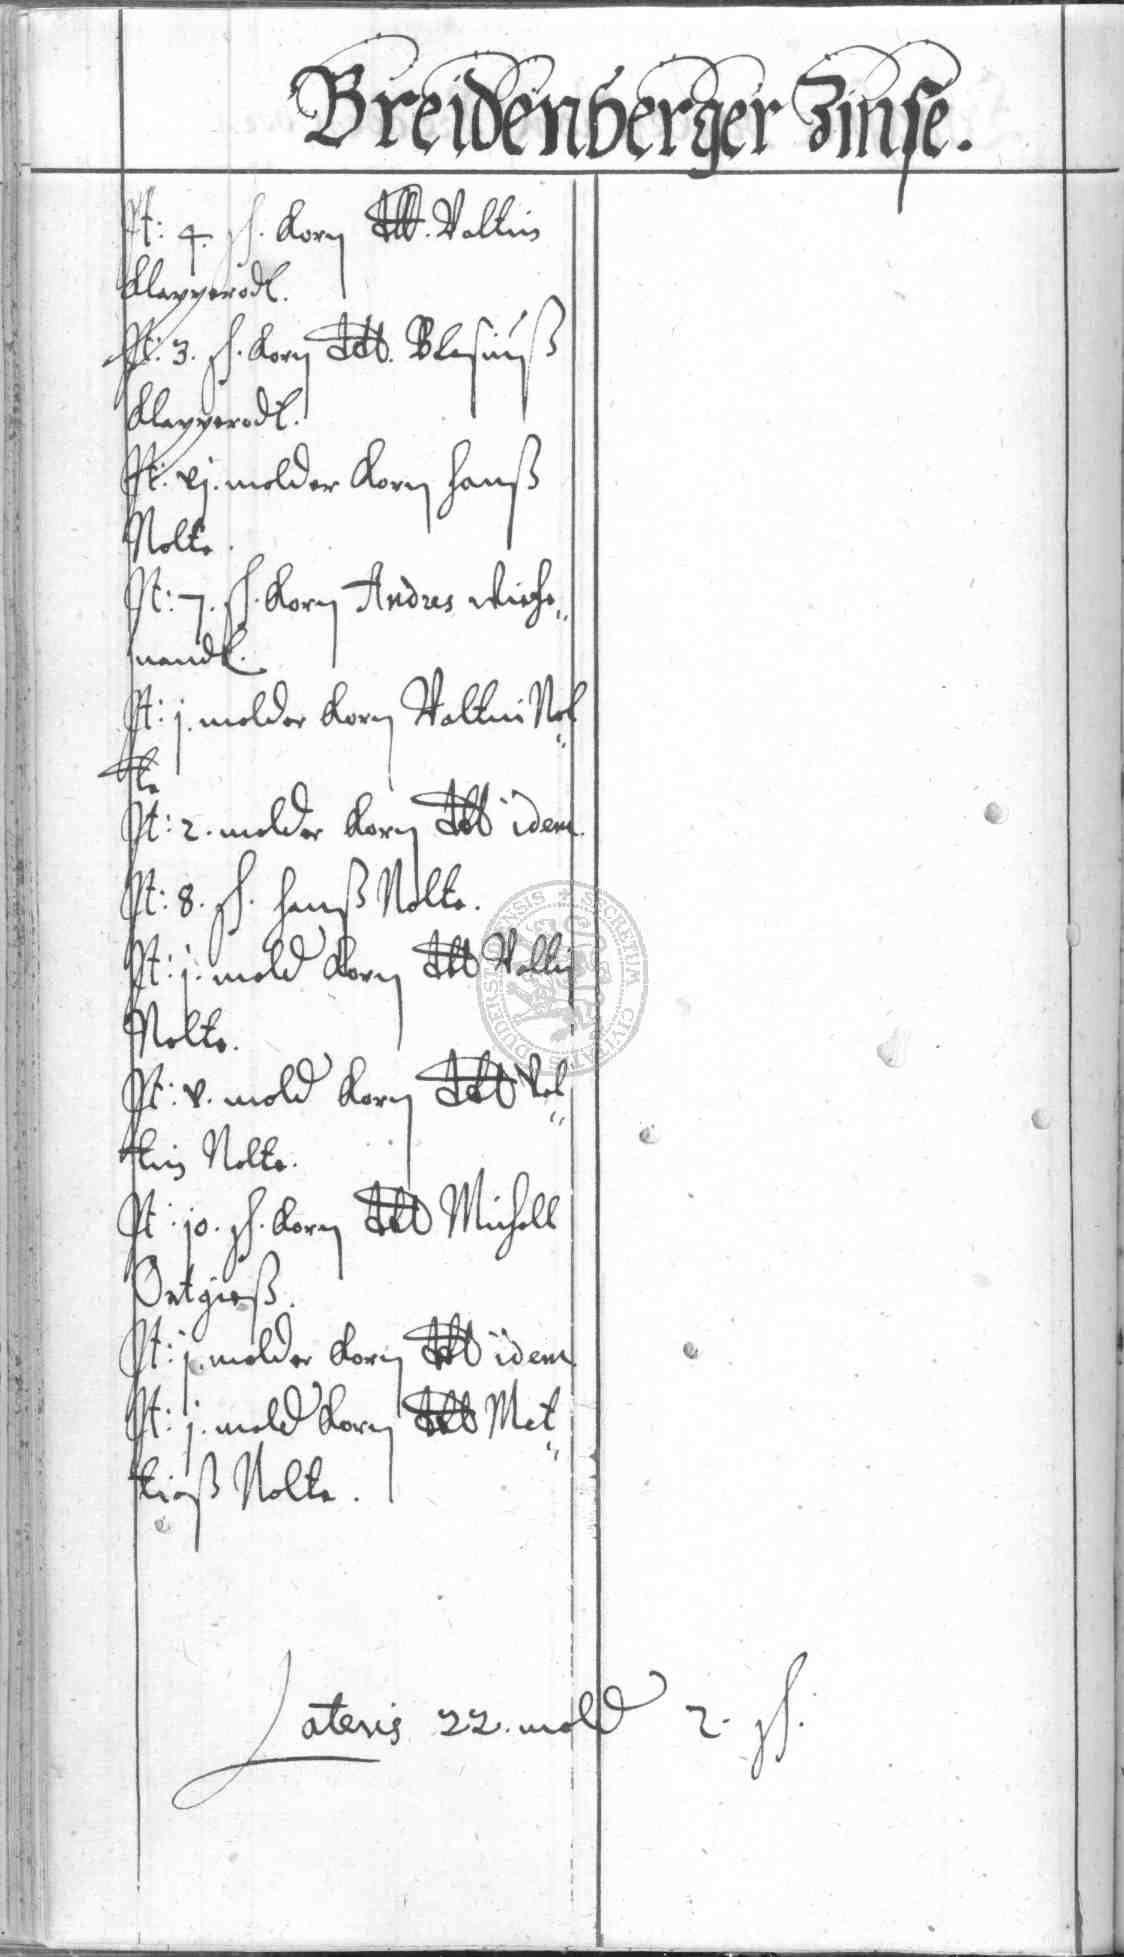 Breidenberger Zinse.
It: 4. sch. Korn dt. Valtin
Klapperodt.
It: 3. sch. Korn dt. Blasiuß
Klapperodt.
It: vj. molder Korn Hanß
Nolte.
It: 7. sch. Korn Andres Wiehe„
nandt.
It: j. molder Korn Valtin Nol„
te
It: 2. molder Korn dt idem.
It: 8. sch. Hanß Nolte.
It: j. mold Korn dt Valtin
Nolte.
It: v. mold Korn dt Val„
tin Nolte.
It: jo. sch. Korn dt Michell
Ortgieß.
It: j. molder Korn dt idem
It: j. mold Korn dt Mat„
tieß Nolte.
SECRETUM CIVITATIS DUDERSTADENSIS
Lateris 22. mold 2. sch.